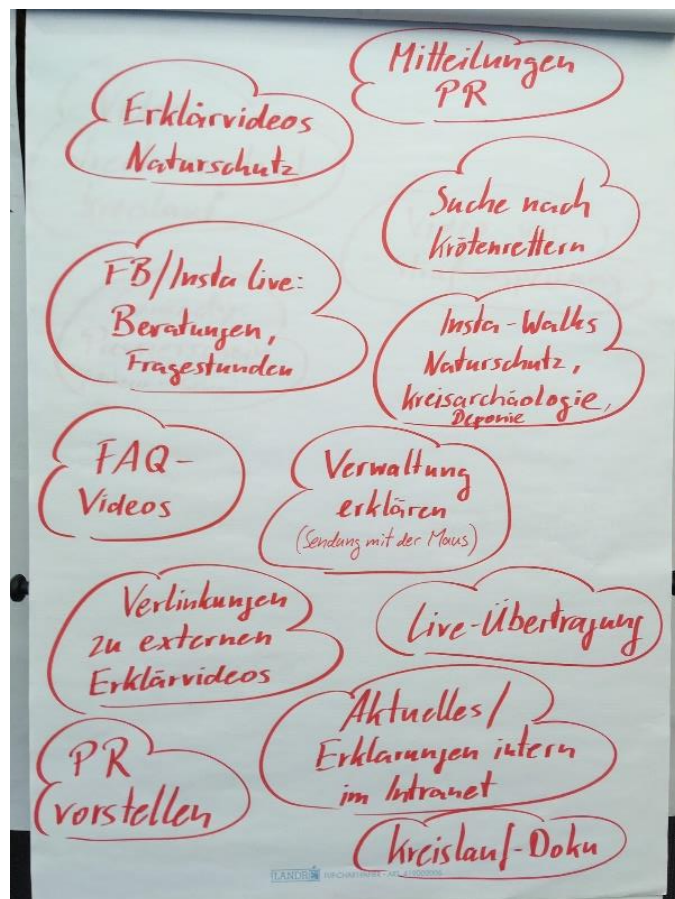 Mitteilungen
PR
Erklärvideos
Naturschutz
Suche nach
Krötenrettern
FB/Insta Live:
Beratungen,
Fragestunden
Insta-Walks
Naturschutz,
Kreisarchäologie,
Deponie
FAQ-
Videos
Verwaltung
erklären
(Sendung mit der Maus)
Verlinkungen
zu externen
Erklärvideos
Live-Übertragung
Aktuelles/
Erklärungen intern
im Intranet
PR
vorstellen
Kreislauf-Doku
LANDRÉ